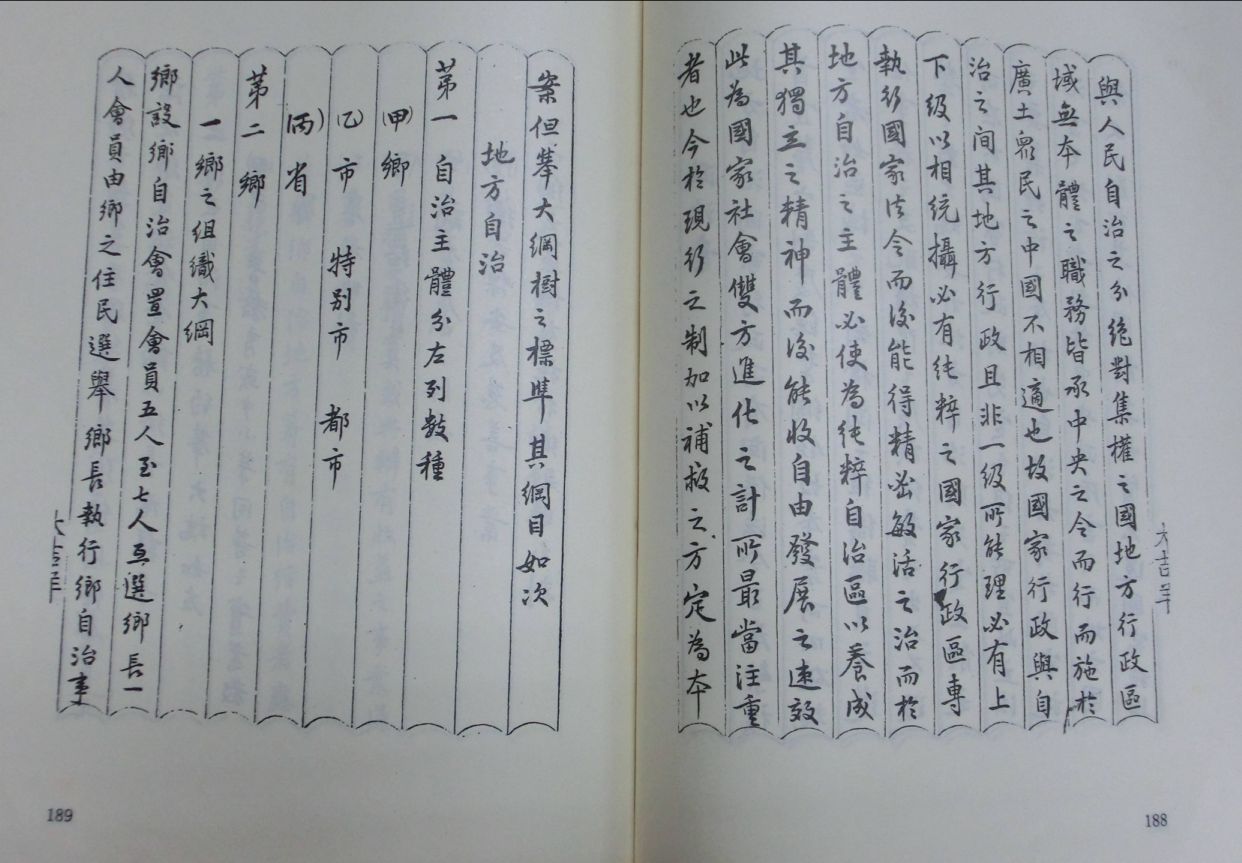 與人民自治之分絕對集權之國地方行政區
域無本體之職務皆承中央之令而行而施於
廣土眾民之中國不相適也故國家行政與自
治之間其地方行政且非一級所能理必有上
下級以相統攝必有純粹之國家行政區專
執行國家法令而後能得精密敏活之治而於
地方自治之主體必使為純粹自治區以養成
其獨立之精神而後能收自由發展之速效
此為國家社會雙方進化之計所最當注重
者也今於現行之制加以補救之方定為本
188
案但舉大綱樹之標準其綱目如次
地方自治
第一 自治主體分左列數種
(甲) 鄉
(乙) 市 特別市 都市
(丙) 省
第二 鄉
一 鄉之組織大綱
鄉設鄉自治會置會員五人至七人互選鄉長一
人會員由鄉之住民選舉鄉長執行鄉自治事
189